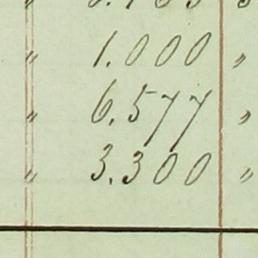 " 1.000 "
" 6.577 "
" 3.300 "